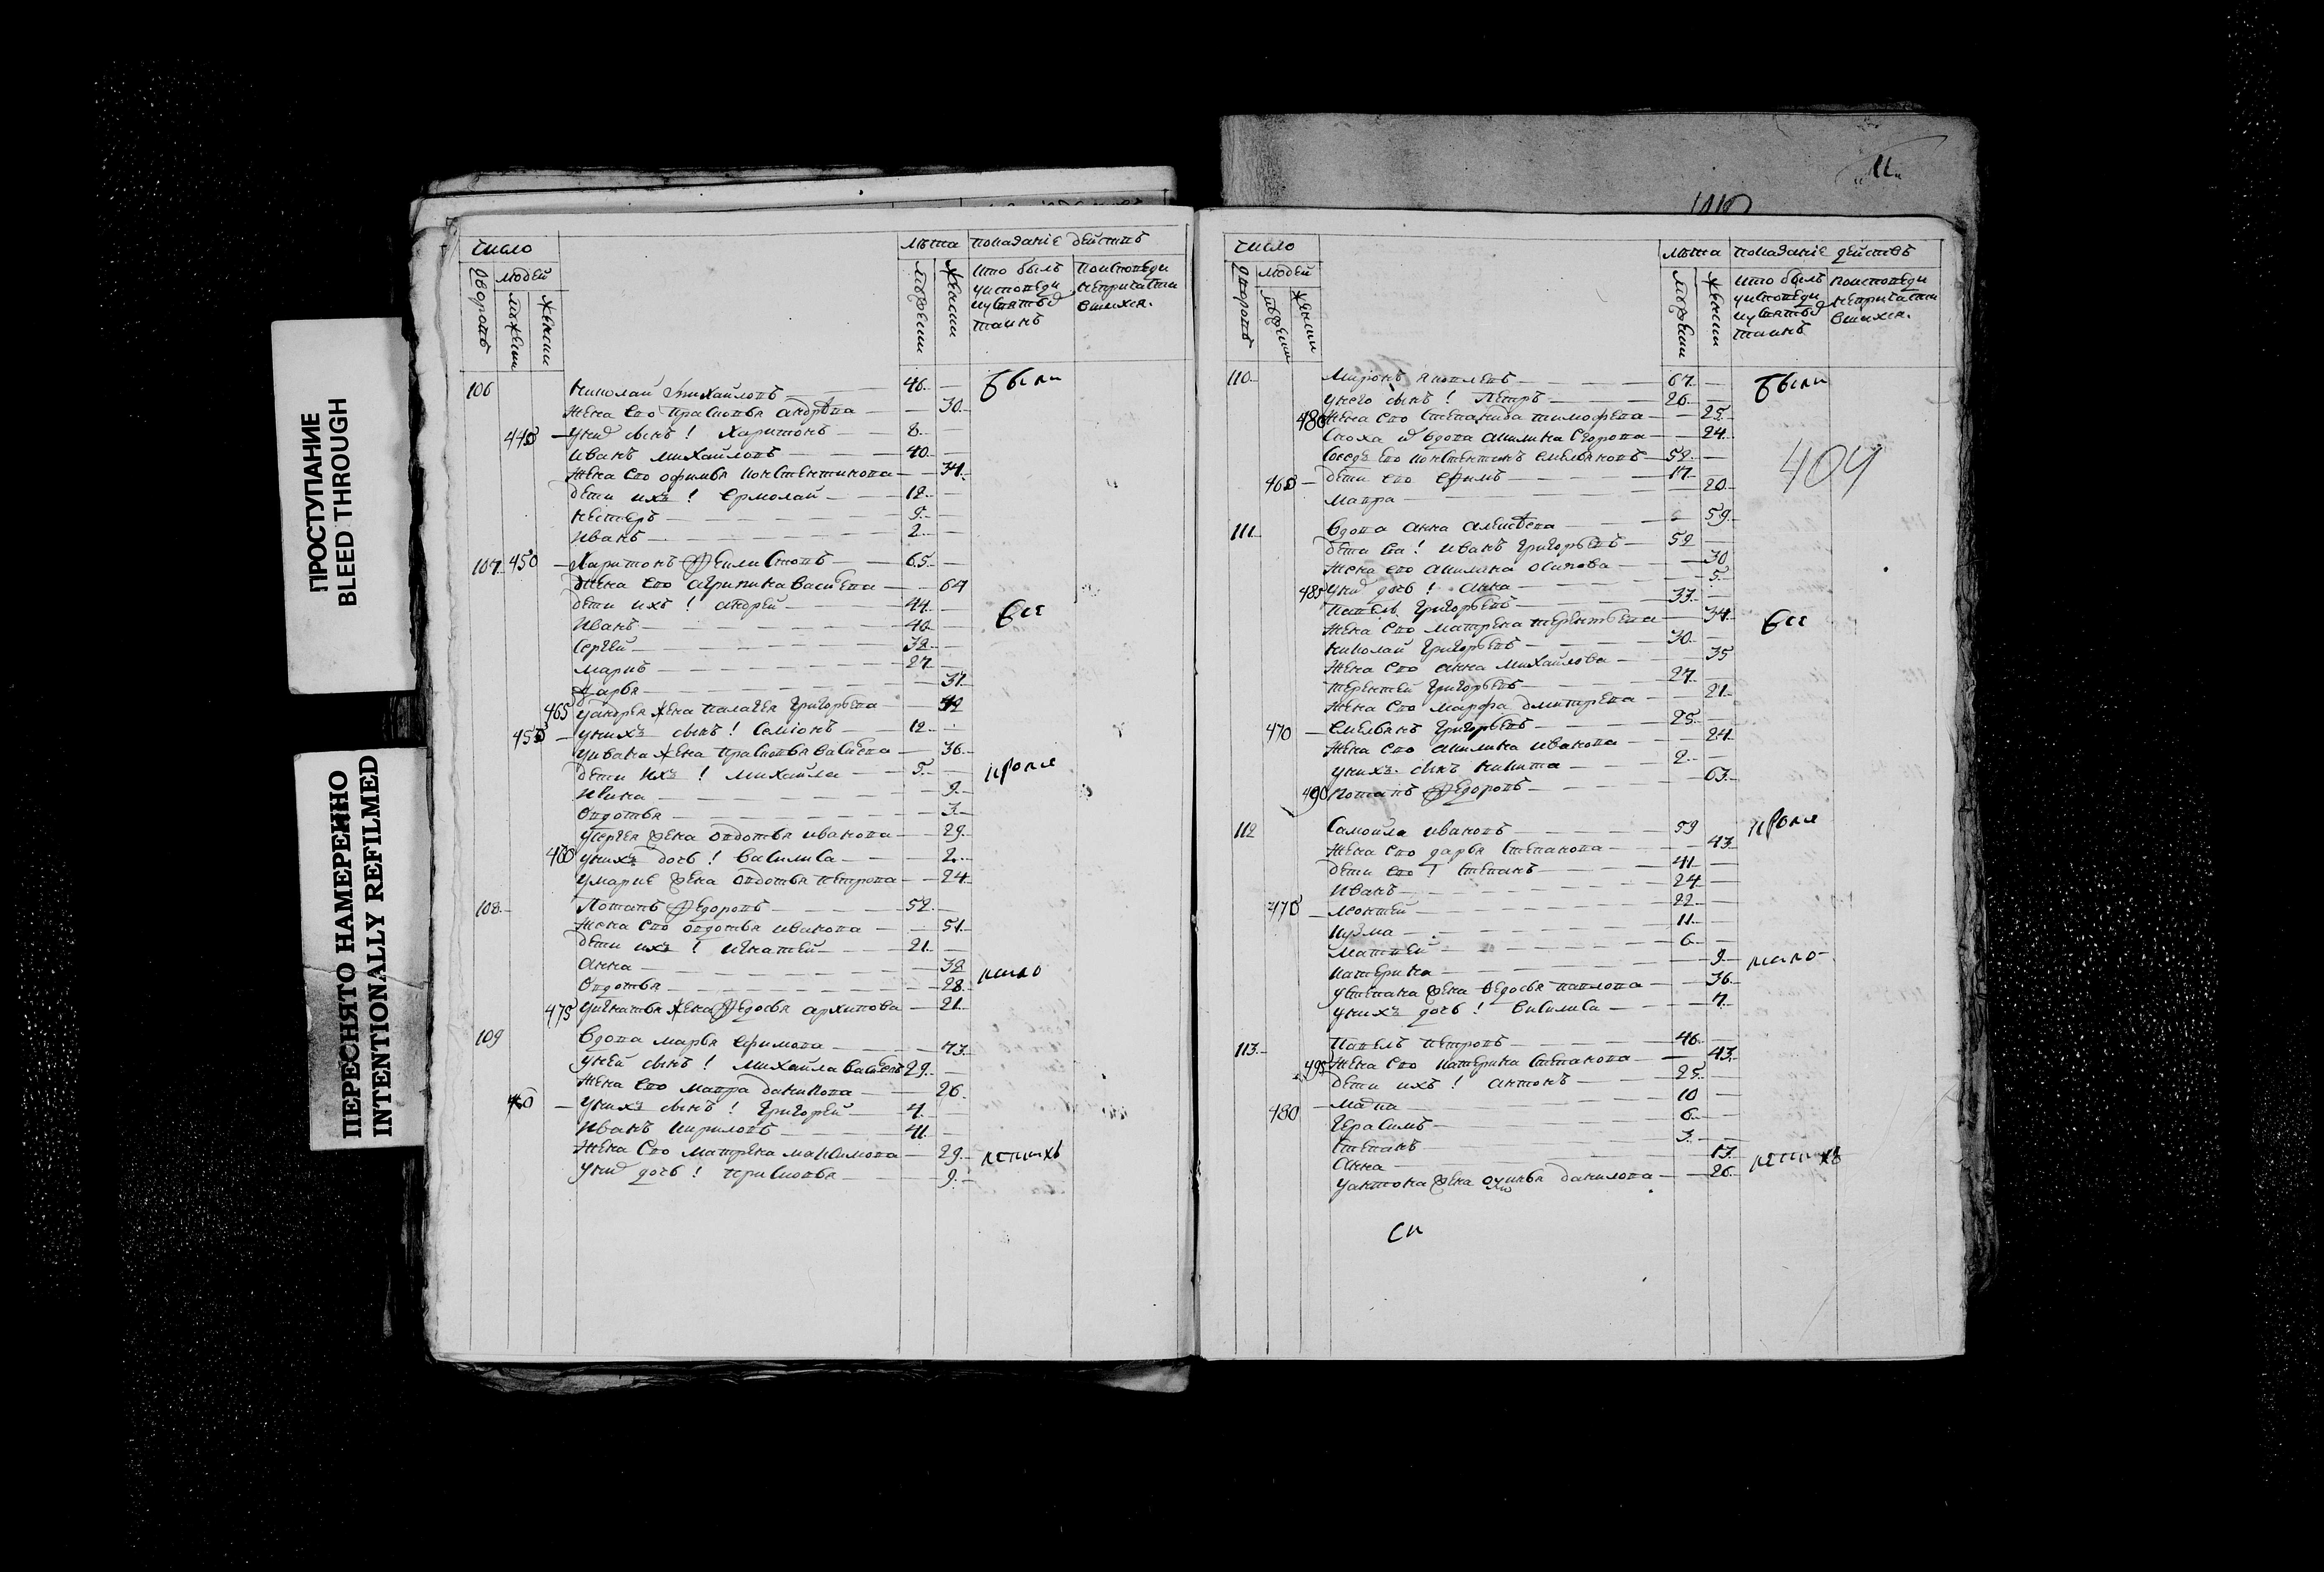 ПРОСТУПАНИЕ
BLEED THROUGH
ПЕРЕСНЯТО НАМЕРЕННО
INTENTIONALLY REFILMED
11
число
лѣта показаніе действъ
дворовъ
людей
мужеска
женски
мужески
женски
кто былъ
у исповеди
и у святыхъ
таинъ
по исповеди
непричасти
вшихся.
106 Николай Михайловъ 46 были
жена его Прасковья Андрѣва 30
445 у них сынъ! Харитонъ 8
Иванъ Михайловъ 40
жена его Офимья Константинова 34
дети ихъ! Ермолай 12
Нестеръ 5
Иванъ 2
107 450 Харитонъ Феилистовъ 65
жена его Агрипина Васильева 64
дети ихъ! Андрей 44 все
Иванъ 40
Сергей 32
Маркъ 27
Дарья 37
465 у Андрея жена Палагея Григорьева 42
455 у нихъ сынъ! Семіонъ 12
у Ивана жена Прасковья Васильева 36
дети ихъ! Михайла 5 кроме
9
Овдотья 3
у Сергея жена Овдотья Иванова 29
460 у нихъ дочь! Василиса 2
у Марке жена Овдотья Петрова 24
108 Потапъ Федоровъ 52
жена его Овдотья Иванова 51
дети ихъ! Игнатей 21
Анна 32 мало
Овдотья 28
475 у Игнатья жена Федосья Архипова 21
109 Вдова Марья Ефимова 73
у ней сынъ! Михайла Васильевъ 29
жена его Мавра Данилова 26
460 у нихъ сынъ! Григорей 4
Иванъ Кириловъ 41
жена его Матрена Максимова 29 летнихъ
у них дочь! Прасковья 9
число
лѣта показаніе действъ
дворовъ
людей
мужески
женски
мужески
женски
кто былъ
у исповеди
и у святыхъ
таинъ
по исповеди
непричасти
вшихся.
110 Миронъ Яковлевъ 67 были
у него сынъ! Петръ 26
480 жена его Степанида Тимофева 25
сноха и вдова Акилина Егорова 24
сосед его Констентинъ Емельяновъ 52
465 дети его Ефимъ 17
Мавра 20
404
111 Вдова Анна Алексѣева 59
дети ея! Иванъ Григорьевъ 52
жена его Акилина Осипова 30
485 у них дочь! Анна 5
Павелъ Григорьевъ 33
жена его Матрена Терентьева 34 все
Николай Григорьевъ 30
жена его Анна Михайлова 35
Терентей Григорьевъ 27
жена его Марфа Дмитрева 21
470 Емельянъ Григорьевъ 25
жена его Акилина Иванова 24
у нихъ сынъ Никита 2
490 Потапъ Федоровъ 63
112 Самойла Ивановъ 59 кроме
жена его Дарья Степанова 43
дети его! Степанъ 41
Иванъ 24
475 Леонтей 22
Кузма 11
Матвей 6
Катерина 9 мало
у Степана жена Федосья Павлова 36
у нихъ дочь! Василиса 7
113 Павелъ Петровъ 46
495 жена его Катерина Степанова 43
дети ихъ! Антонъ 25
10
480 Герасимъ 6
Степанъ 3
Анна 13 летнихъ
у Антона жена Данилова 26